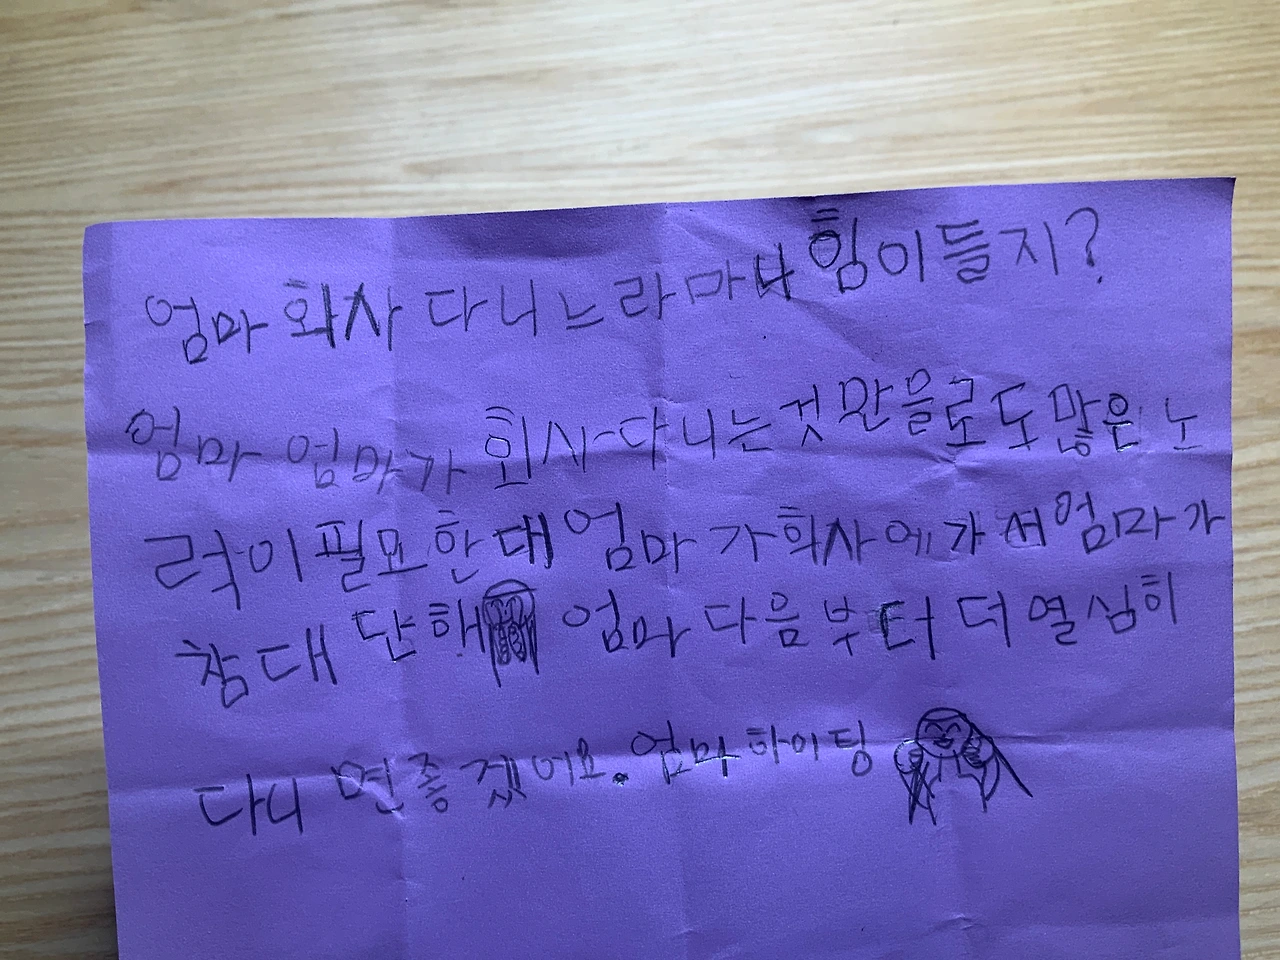 엄마 회사 다니느라 마니 힘이들지?
엄마 엄마가 회사다니는것 만을로도 많은 노
력이 필요한대 엄마가 회사에 가서 엄마가
참 대단해 엄마 다음부터 더 열심히
다니면 좋겠어요. 엄마 하이팅